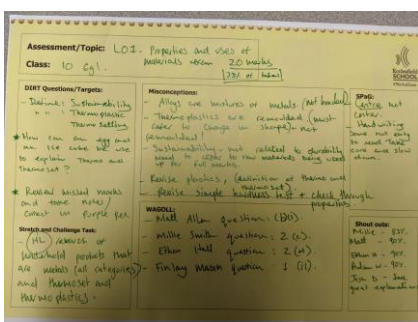 Assessment/Topic: LO1. Properties and uses of
materials exam 20 marks
Class: 10 Eg1.
SCHOOL
DIRT Questions/Targets:
- Define: Sustainability
" " Thermoplastic
Thermosetting
* How can an egg and
an ice cube be use
to explain thermo and
thermoset?
* Review missed marks
and take notes/
correct in purple pen
Stretch and Challenge Task:
- (HL) research
household products that
are metals (all categories)
and thermoset and
thermoplastics.
Misconceptions:
- Alloys are mixtures of metals (not bonded)
- Thermoplastics are remoulded (must
refer to change in shape) - not
- Sustainability - not related to durability
need to refer to raw materials being used
up for full marks.
- Revise plastics, (definition of thermo and
thermoset)
- Revise simple hardness test + check through
properties
WAGOLL:
- Matt Allen question: 1(b)i)
- Millie Smith question: 2 (c)
- Ethan Hall question: 2 (a).
- Finlay Mason question 1 (ii).
SPaG:
Centre not
Center.
- Handwriting
some not easy
to read. Take
care and slow
down.
Shout outs:
Millie - 85%.
Matt - 90%.
Ethan H - 90%.
- 90%.
Josh B - Save
great explanation